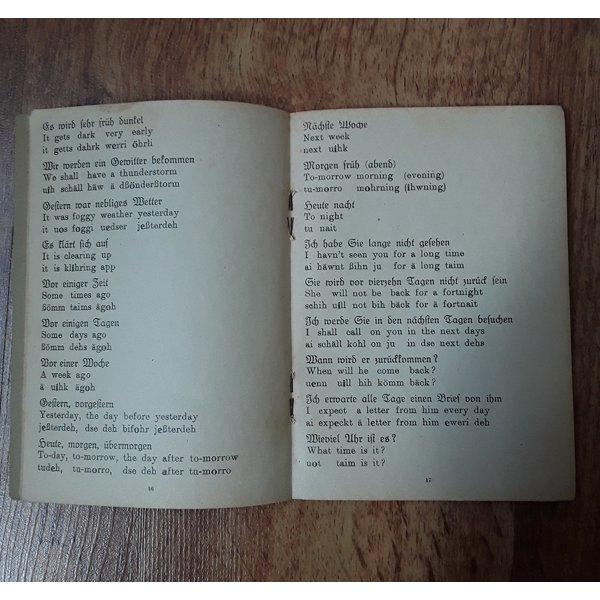 Es wird sehr früh dunkel
It gets dark very early
it getts dahrk werri öhrli
Wir werden ein Gewitter bekommen
We shall have a thunderstorm
uih schäll häw ä dßönderßtorm
Gestern war nebliges Wetter
It was foggy weather yesterday
it uos foggi uedser jeßterdeh
Es klärt sich auf
It is clearing up
it is klihring app
Vor einiger Zeit
Some times ago
ßömm taims ägoh
Vor einigen Tagen
Some days ago
ßömm dehs ägoh
Vor einer Woche
A week ago
ä uihk ägoh
Gestern, vorgestern
Yesterday, the day before yesterday
jeßterdeh, dse deh bifohr jeßterdeh
Heute, morgen, übermorgen
To-day, to-morrow, the day after to-morrow
tudeh, tu-morro, dse deh after tu-morro
16
Nächste Woche
Next week
next uihk
Morgen früh (abend)
To-morrow morning (evening)
tu-morro mohrning (ihwning)
Heute nacht
To night
tu nait
Ich habe Sie lange nicht gesehen
I havn't seen you for a long time
ai häwnt ßihn ju for ä long taim
Sie wird vor vierzehn Tagen nicht zurück sein
She will not be back for a fortnight
schih uill not bih bäck for ä fortnait
Ich werde Sie in den nächsten Tagen besuchen
I shall call on you in the next days
ai schäll kohl on ju in dse next dehs
Wann wird er zurückkommen?
When will he come back?
uenn uill hih kömm bäck?
Ich erwarte alle Tage einen Brief von ihm
I expect a letter from him every day
ai expeckt ä letter from him eweri deh
Wieviel Uhr ist es?
What time is it?
uot taim is it?
17